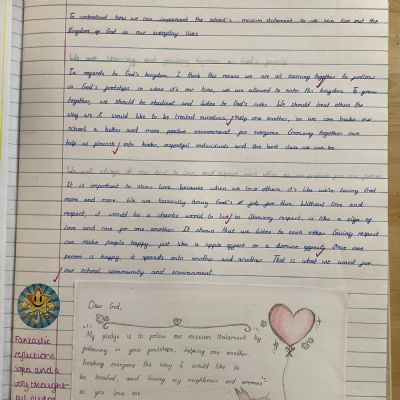 To understand how we can implement the school's mission statement so we can live out the
Kingdom of God in our everyday lives
We are learning and growing together as God's people
In regards to God's kingdom, I think this means we are all learning together to follow
in God's footsteps so when it's our time, we are allowed to enter His kingdom. To grow
together, we should be obedient and listen to God's rules. We should treat others the
way we would like to be treated ourselves, help one another, so we can make our
school a better and more positive environment for everyone. Growing together can
help us flourish into kinder, respectful individuals and the best class we can be.
We will always do our best to love and respect each other as we
It is important to show love because when we love others, it's like we're loving God
more and more. We are basically doing God's job for Him. Without love and
respect, it would be a chaotic world to live in. Showing respect, is like a sign of
love and care for one another. It shows that we listen to each other. Giving respect
can make people happy, just like a ripple effect or a domino effect. Once one
person is happy, it spreads onto another and another. That is what we want for
our school community and environment.
Dear God,
My pledge is to follow our mission statement by
following in your footsteps, helping one another,
treating everyone the way I would like to
be treated, and loving my neighbours and enemies
as you love me.
Fantastic
reflections
and a
very thoughtful
pledge